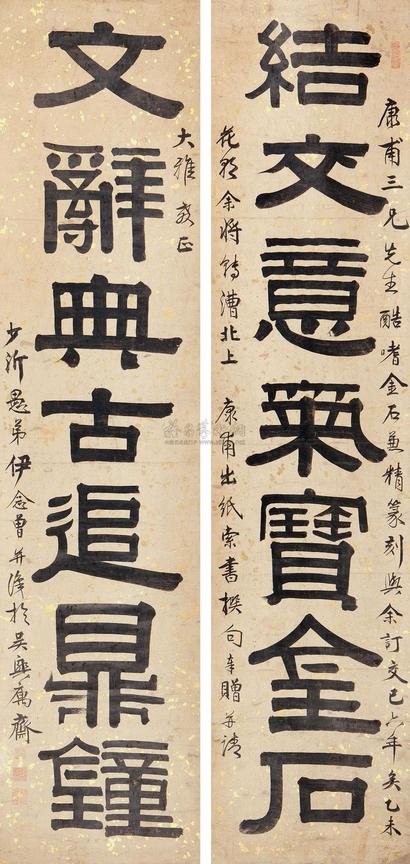 康甫三兄先生酷嗜金石兼精篆刻與余訂交已六年矣乙未
結交意氣寶金石
花朝余將轉漕北上 康甫出紙索書撰句奉贈並請
大雅教正
文辭典古追鼎鐘
少沂愚弟伊念曾并識於吳興寓齋